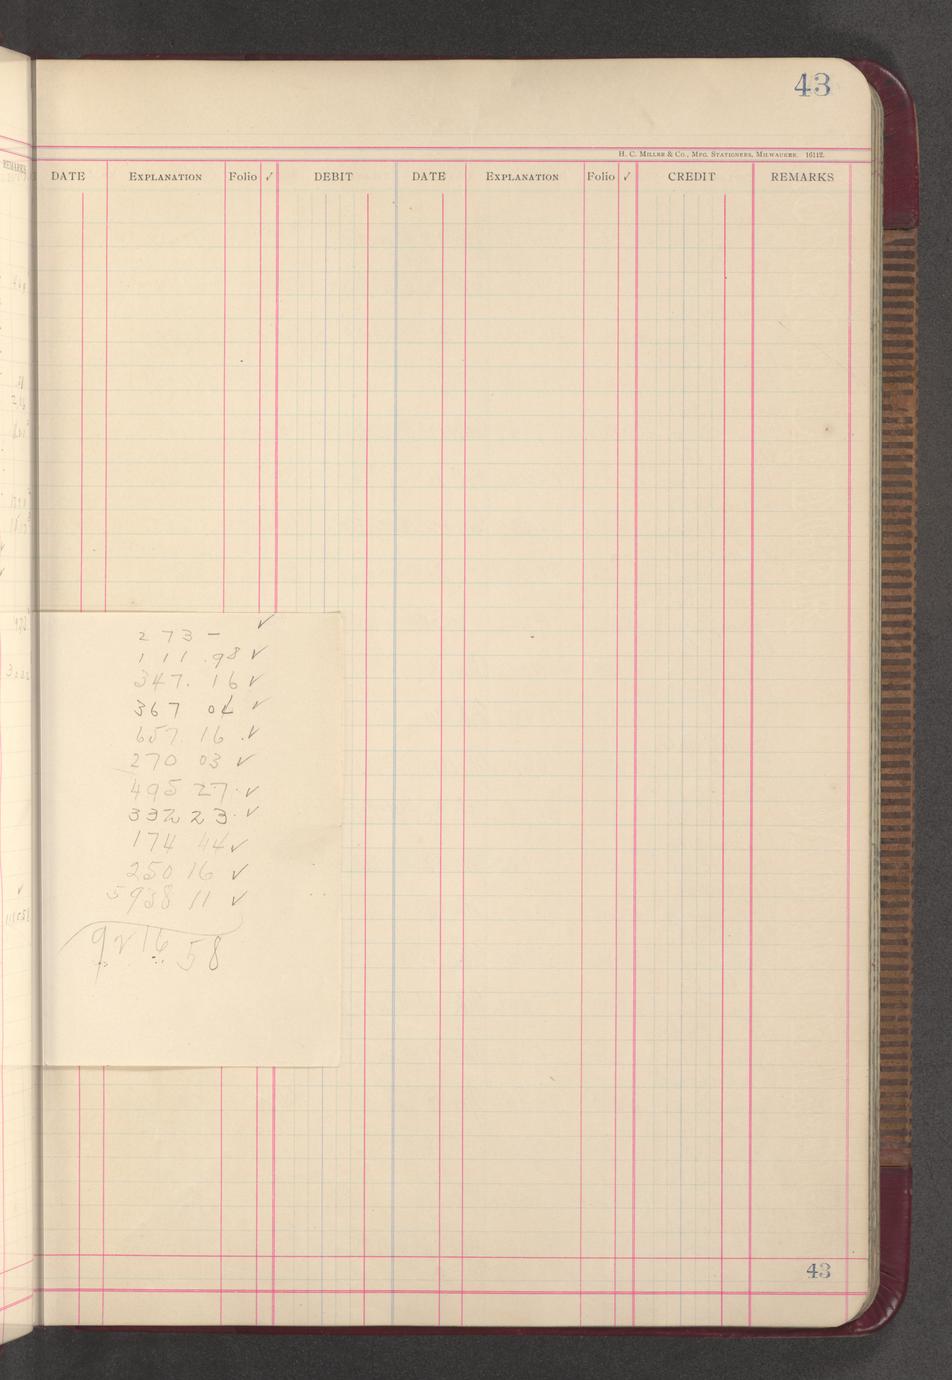 43
H. C. Miller & Co., Mfg. Stationers, Milwaukee. 16112.
REMARKS
DATE Explanation Folio ✓ DEBIT DATE Explanation Folio ✓ CREDIT REMARKS
273 – ✓
111 .98 ✓
347. 16 ✓
367 04 ✓
657. 16 ✓
270 03 ✓
495 27 ✓
332 23 ✓
174 44 ✓
250 16 ✓
5938 11 ✓
9216 58
43